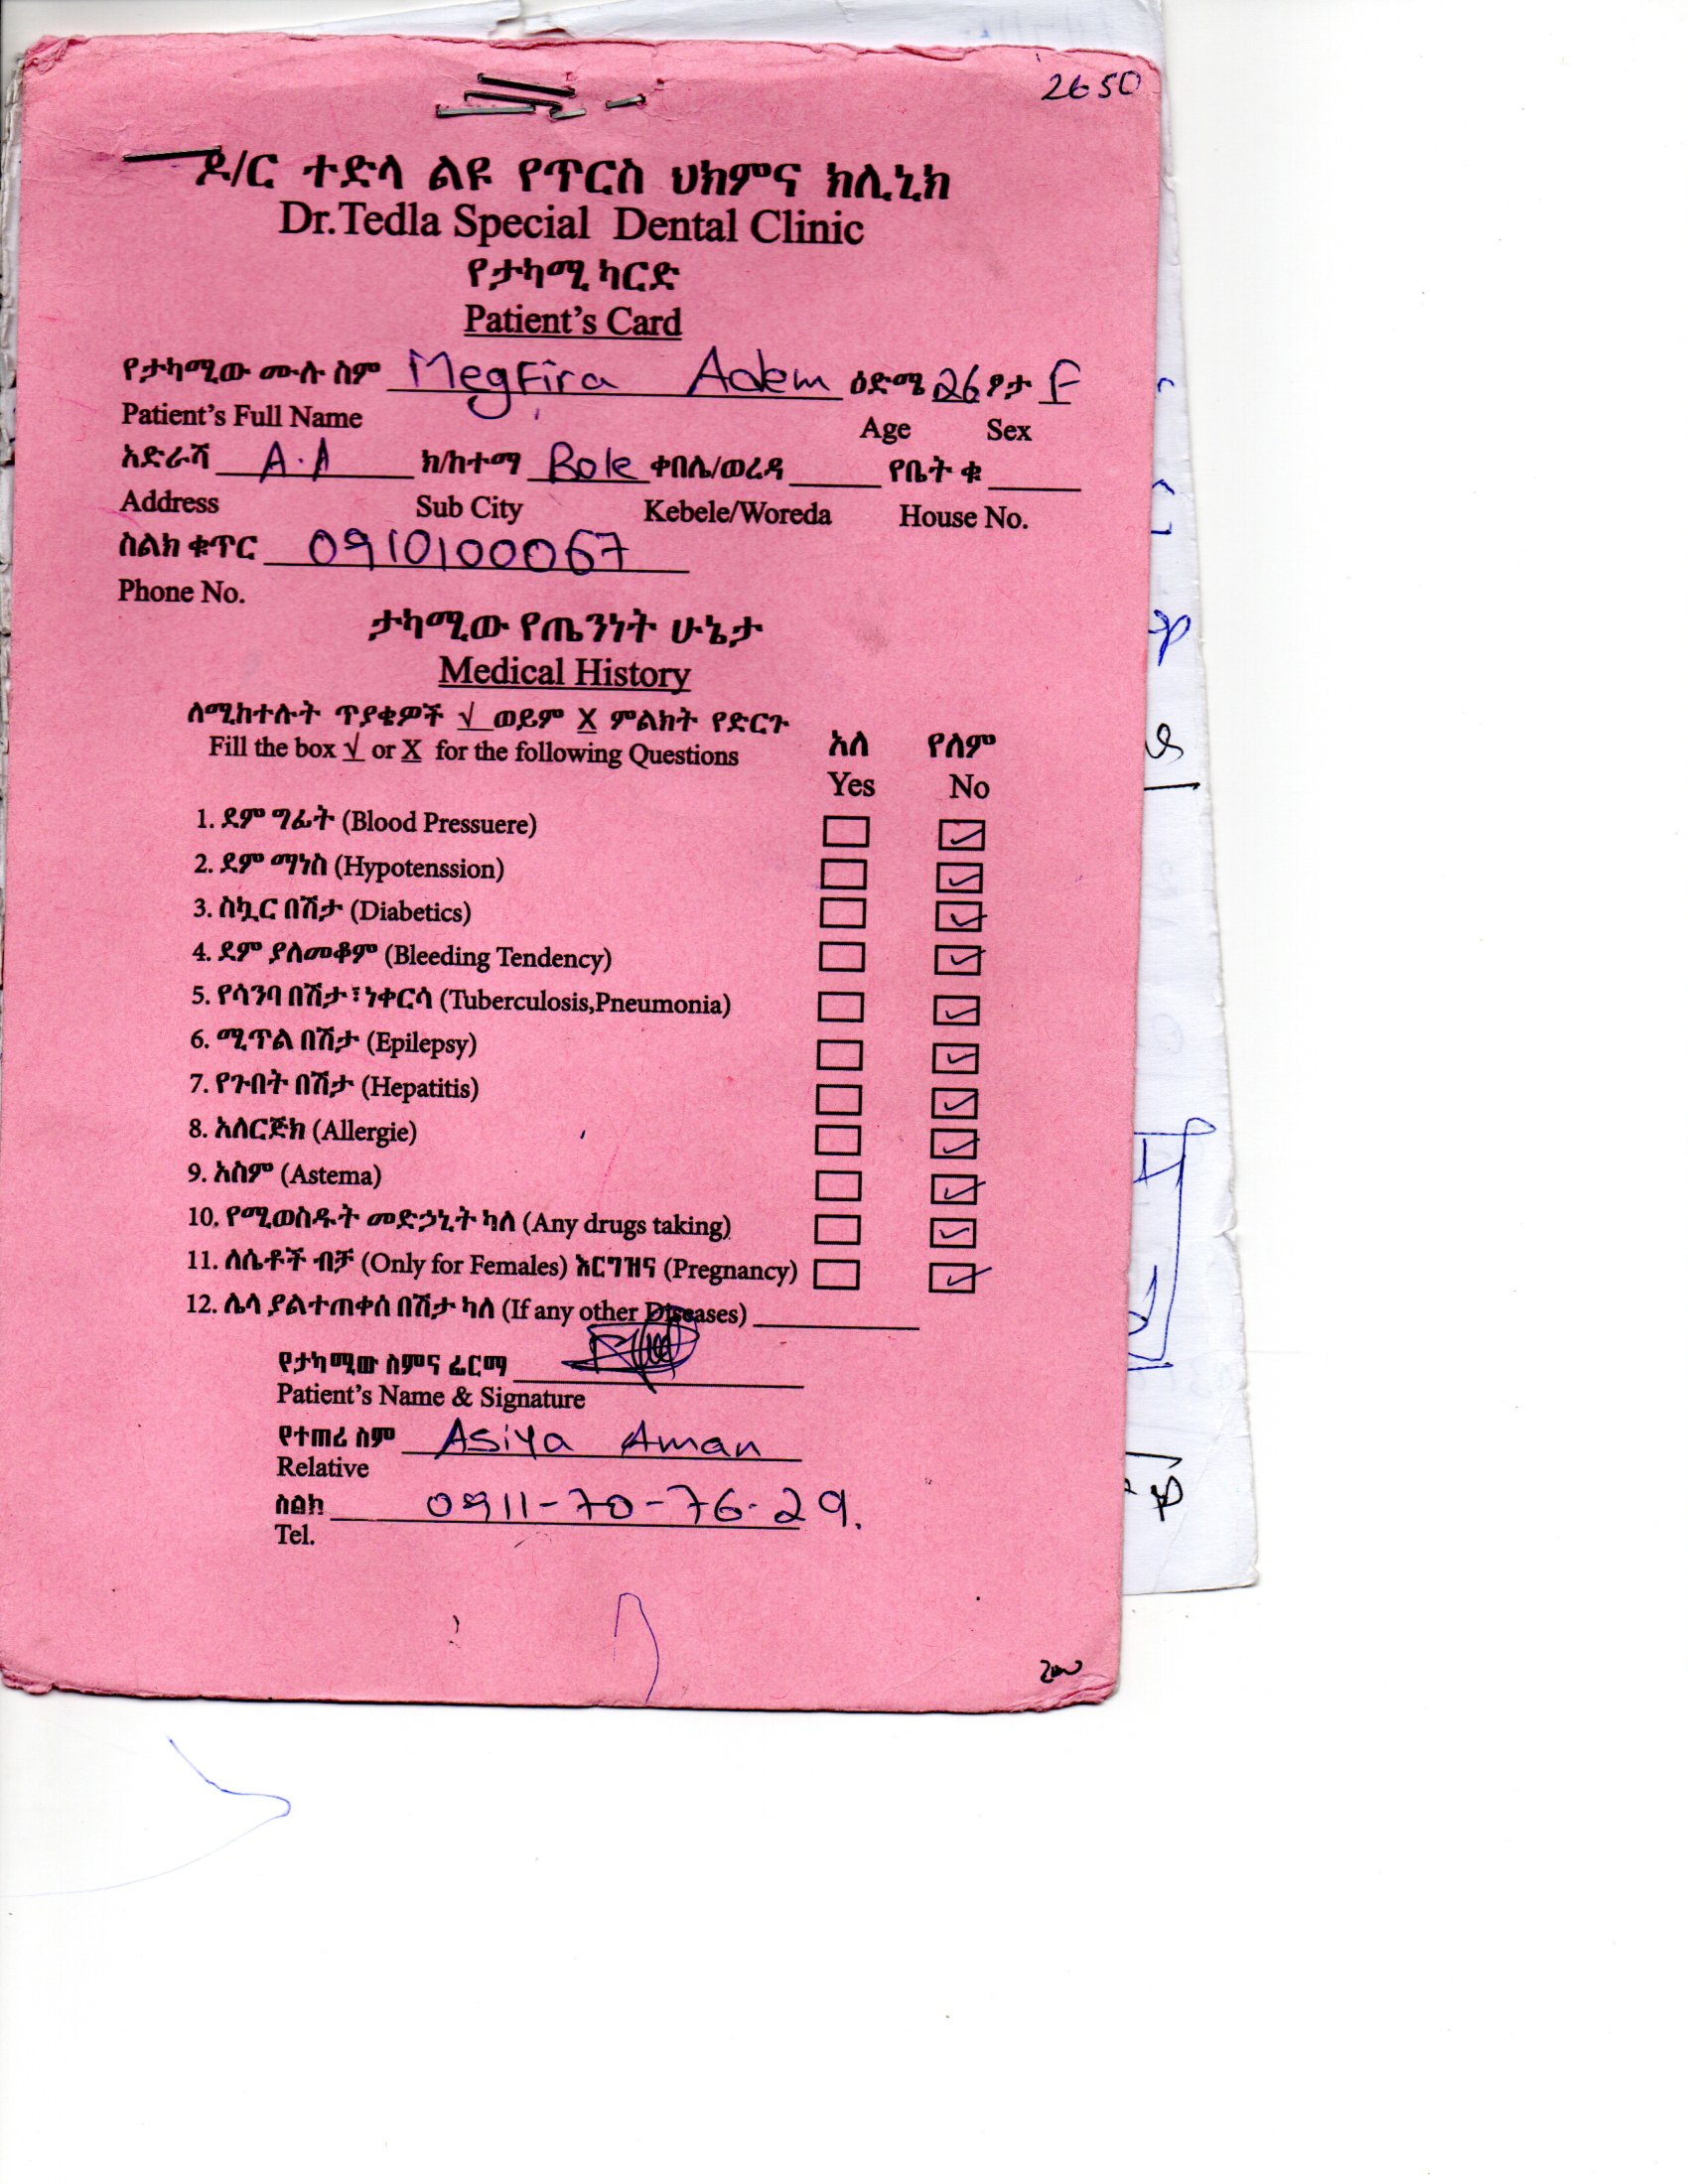 2650
ዶ/ር ተድላ ልዩ የጥርስ ህክምና ክሊኒክ
Dr.Tedla Special Dental Clinic
የታካሚ ካርድ
Patient's Card
የታካሚው ሙሉ ስም Megfira Adem ዕድሜ 26 ፆታ F
Patient's Full Name Age Sex
አድራሻ A.A ክ/ከተማ Bole ቀበሌ/ወረዳ የቤት ቁ
Address Sub City Kebele/Woreda House No.
ስልክ ቁጥር 0910100067
Phone No.
ታካሚው የጤንነት ሁኔታ
Medical History
ለሚከተሉት ጥያቄዎች √ ወይም X ምልክት የድርጉ
Fill the box √ or X for the following Questions
አለ የለም
Yes No
1. ደም ግፊት (Blood Pressuere) ✓
2. ደም ማነስ (Hypotenssion) ✓
3. ስኳር በሽታ (Diabetics) ✓
4. ደም ያለመቆም (Bleeding Tendency) ✓
5. የሳንባ በሽታ፣ነቀርሳ (Tuberculosis,Pneumonia) ✓
6. ሚጥል በሽታ (Epilepsy) ✓
7. የጉበት በሽታ (Hepatitis) ✓
8. አለርጅክ (Allergie) ✓
9. አስም (Astema) ✓
10. የሚወስዱት መድኃኒት ካለ (Any drugs taking) ✓
11. ለሴቶች ብቻ (Only for Females) እርግዝና (Pregnancy) ✓
12. ሌላ ያልተጠቀሰ በሽታ ካለ (If any other Diseases)
የታካሚው ስምና ፊርማ
Patient's Name & Signature
የተጠሪ ስም Asiya Aman
Relative
ስልክ 0911-70-76-29.
Tel.